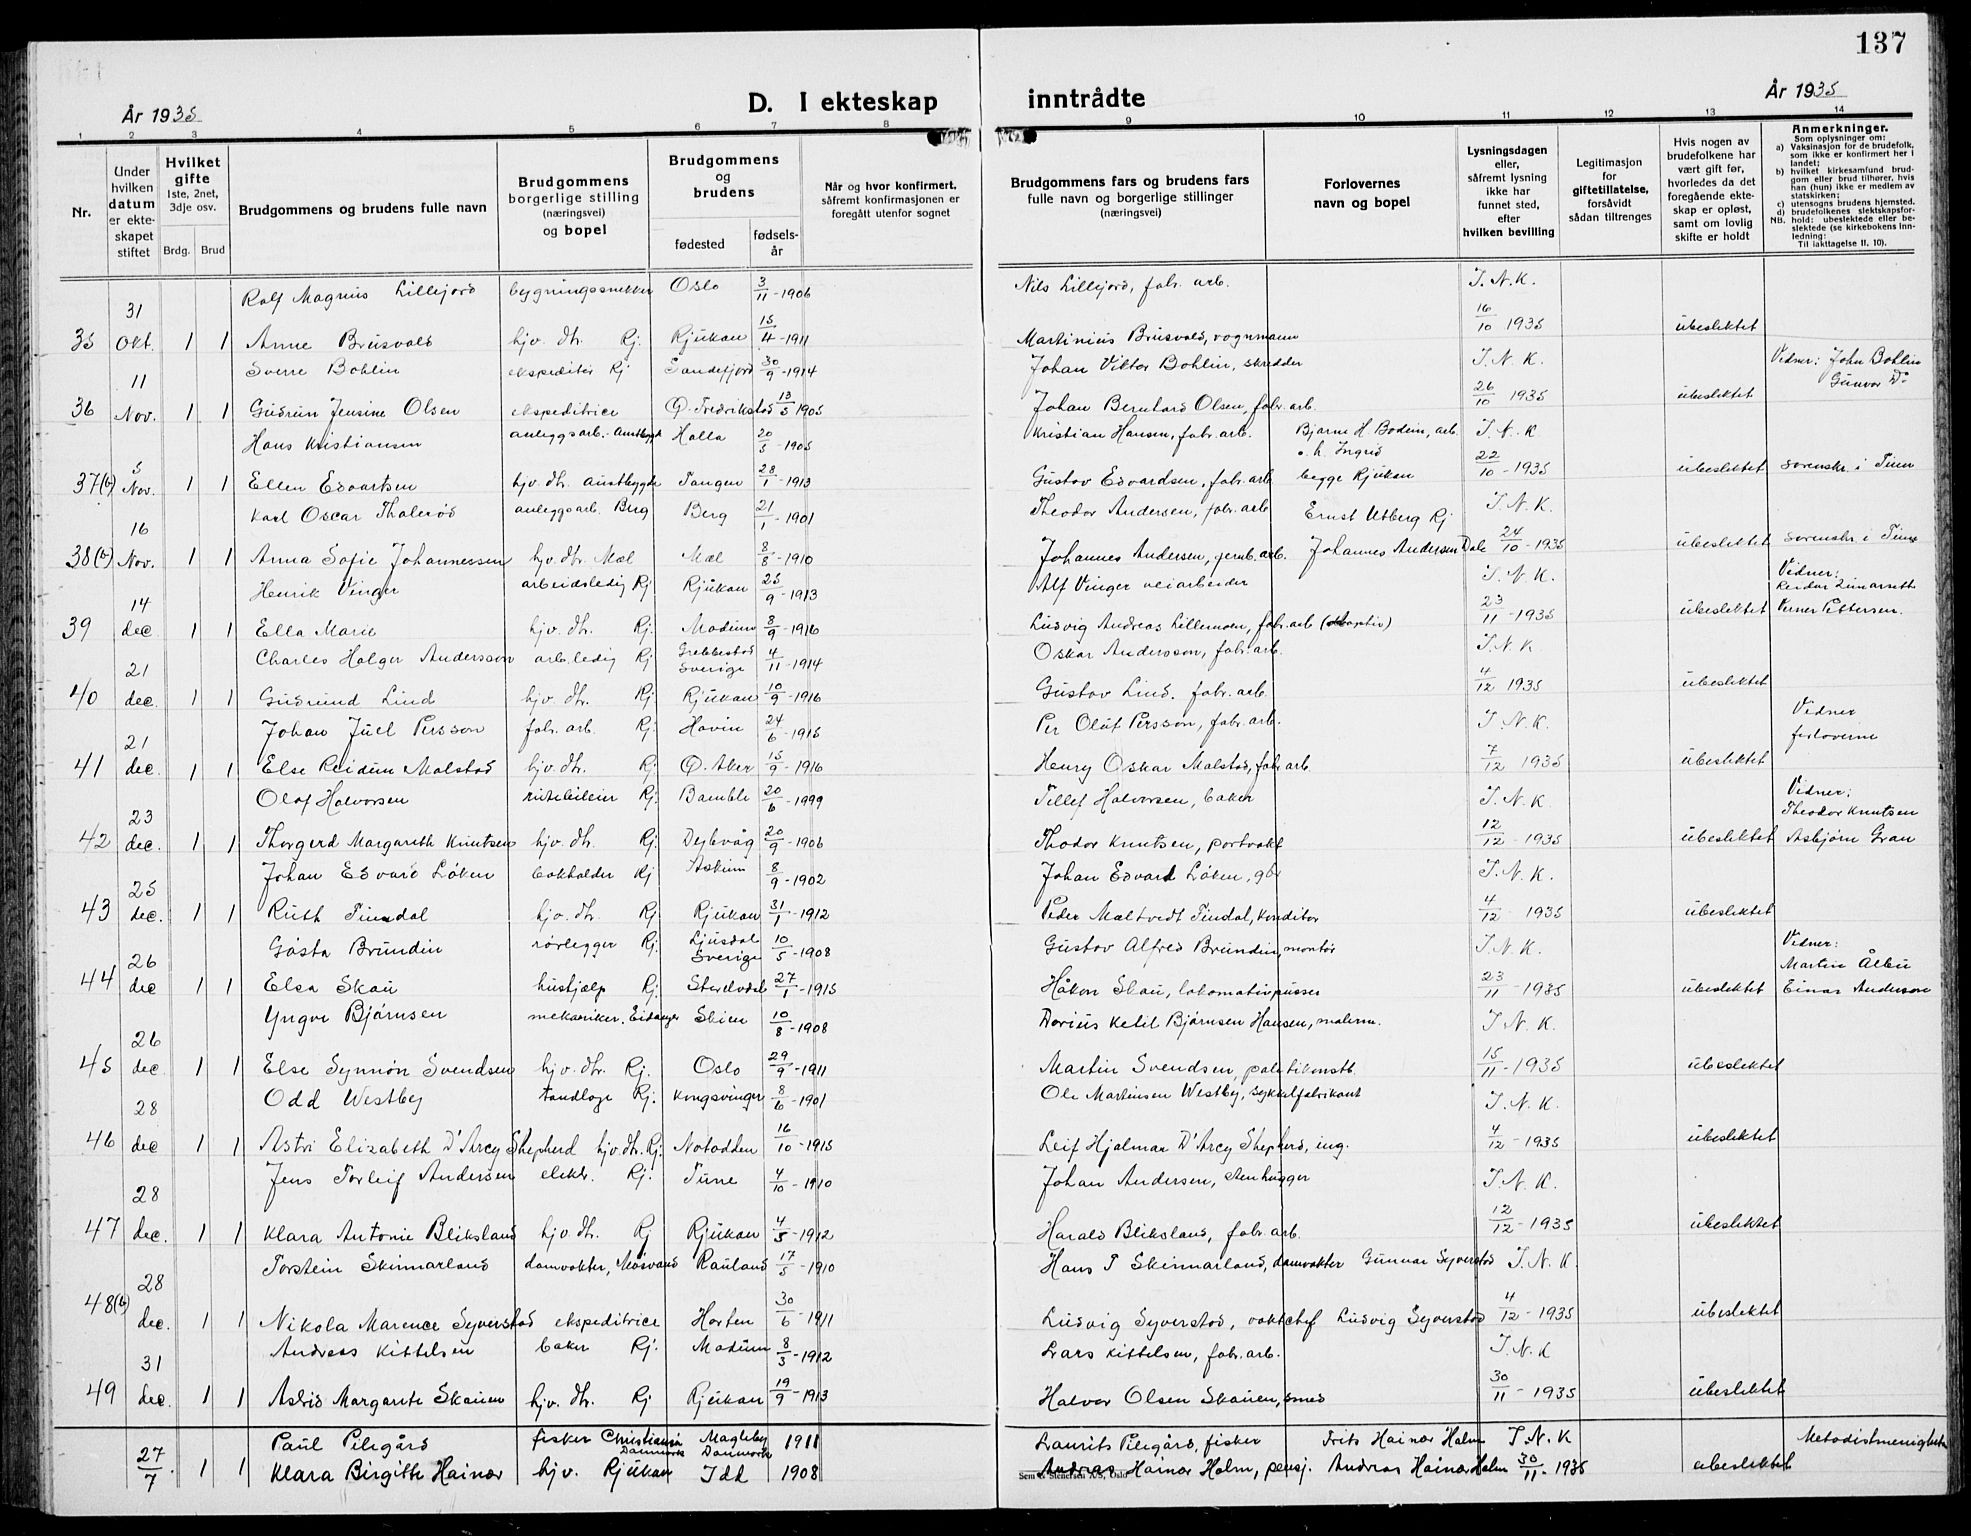 137
År 1935
D. I ekteskap inntrådte
År 1935
1 2 3 4 5 6 7 8 9 10 11 12 13 14
Nr.
Under hvilken datum er ekteskapet stiftet
Hvilket gifte
1ste, 2net, 3dje osv.
Brdg. Brud
Brudgommens og brudens fulle navn
Brudgommens borgerlige stilling (næringsvei) og bopel
Brudgommens og brudens
fødested
fødselsår
Når og hvor konfirmert, såfremt konfirmasjonen er foregått utenfor sognet
Brudgommens fars og brudens fars fulle navn og borgerlige stillinger (næringsvei)
Forlovernes navn og bopel
Lysningsdagen eller, såfremt lysning ikke har funnet sted, efter hvilken bevilling
Legitimasjon for giftetillatelse, forsåvidt sådan tiltrenges
Hvis nogen av brudefolkene har vært gift før, hvorledes da det foregående ekteskap er opløst, samt om lovlig skifte er holdt
Anmerkninger.
Som oplysninger om:
a) Vaksinasjon for de brudefolk, som ikke er konfirmert her i landet;
b) hvilket kirkesamfund brudgom eller brud tilhører, hvis han (hun) ikke er medlem av statskirken;
c) utensogns brudens hjemsted.
d) brudefolkenes slektskapsforhold: ubeslektede eller beslektede (se kirkebokens innledning:
NB. Til iakttagelse II. 10).
31 Rolf Magnus Lillejord bygningssnekker Oslo 3/11-1906 Nils Lillejord, fabr. arb. I.N.K.
35 Okt. 1 1 Anne Brusvold hjv. dtr. Rj. Rjukan 15/4-1911 Martinius Brusvold, vognmann 16/10 1935 ubeslektet
11 Sverre Bohlin ekspeditør Rj Sandefjord 30/9-1914 Johan Viktor Bohlin, skredder I.N.K. Vidner: John Bohlin
36 Nov. 1 1 Gudrun Jensine Olsen ekspeditrice Ø. Fredrikstad 13/5 1905 Johan Bernhard Olsen, fabr. arb. 26/10 1935 ubeslektet Gunvor Do
5 Hans Kristiansen anleggsarb. Austbygde Holla 20/5-1905 Kristian Hansen, fabr. arb. Bjarne H. Bodein, arb. I.N.K
37(b) Nov. 1 1 Ellen Edvartsen hjv. dtr. Austbygde Tangen 28/1-1913 Gustav Edvardsen, fabr. arb. o. h. Ingrid begge Rjukan 22/10-1935 ubeslektet sorenskr. i Tinn
16 Karl Oscar Thalerød anleggsarb. Berg Berg 21/1-1901 Theodor Andersen, fabr. arb Ernst Utberg Rj I.N.K.
38(b) Nov. 1 1 Anna Sofie Johannessen hjv. dtr. Mæl Mæl 8/8-1910 Johannes Andersen, jernb. arb. Johannes Andersen Dale 24/10-1935 ubeslektet sorenskr. i Tinn
14 Henrik Vinger arbeidsledig Rj Rjukan 25/9-1913 Alf Vinger veiarbeider I.N.K. Vidner:
39 dec 1 1 Ella Marie hjv. dtr. Rj. Modum 8/9-1916 Ludvig Andreas Lillemoen, fabr. arb (adoptiv) 23/11-1935 ubeslektet Verner Pettersen.
21 Charles Holger Andersson arb. ledig Rj Grebbestad Sverige 4/11-1914 Oskar Andersson, fabr. arb. I.N.K.
40 dec. 1 1 Gudrund Lind hjv. dtr. Rj. Rjukan 10/9-1916 Gustav Lind. fabr. arb. 4/12 1935 ubeslektet
21 Johan Juel Persson fabr. arb. Rj. Hovin 24/6-1915 Per Oluf Persson, fabr. arb. I.N.K. Vidner
41 dec. 1 1 Else Reidun Malstad hjv. dtr. Rj Ø. Aker 15/9-1916 Henry Oskar Malstad, fabr. arb. 7/12 1935 ubeslektet forloverne
23 Olaf Halvorsen rutebileier Rj. Bamble 20/6-1999 Tellef Halvorsen, baker I.N.K. Vidner:
42 dec. 1 1 Thorgerd Margareth Knutsen hjv. dtr. Rj. Dybvåg 20/9-1906 Thodor Knutsen, portvakt 12/12-1935 ubeslektet Theodor Knutsen Asbjørn Gran
25 Johan Edvard Løken bokholder Rj Askim 8/9-1902 Johan Edvard Løken, gbr I.N.K.
43 dec. 1 1 Ruth Tindal hjv. dtr. Rj Rjukan 31/1-1912 Peder Mæltvedt Tindal, konditor 4/12-1935 ubeslektet
26 Gösta Brundin rørlegger Rj. Ljusdal Sverige 10/5-1908 Gustav Alfred Brundin, montør I.N.K. Vidner:
44 dec 1 1 Elsa Skau hushjelp Rj. Størelvdal 27/1-1915 Håkon Skau, lokomotivpusser 23/11-1935 ubeslektet Martin Ålbu Einar Andersen
26 Yngve Bjørnsen mekaniker. Eidanger Skien 10/8-1908 Dorius Ketil Bjørnsen Hansen, malerm. I.N.K.
45 dec. 1 1 Else Synnøn Svendsen hjv. dtr. Rj. Oslo 29/9-1911 Martin Svendsen, politikonstb. 15/11-1935 ubeslektet
28 Odd Westby tandlæge Rj. Kongsvinger 8/6-1901 Ole Martinsen Westby, sykkelfabrikant I.N.K.
46 dec 1 1 Astri Elizabeth D'Arcy Shepherd hjv. dtr. Rj. Notodden 16/10-1915 Leif Hjalmar D'Arcy Shepherd, ing. 4/12-1935 ubeslektet
28 Jens Torleif Andersen elektr. Rj. Tune 4/10-1910 Johan Andersen, stenhugger I.N.K.
47 dec. 1 1 Klara Antonie Bliksland hjv. dtr. Rj Rjukan 4/5-1912 Harald Bliksland, fabr. arb. 12/12-1935 ubeslektet
28 Torstein Skinnarland damvokter, Møsvand Rauland 17/5-1910 Hans T Skinnarland, damvokter Gunnar Syverstad I.N.K
48(b) dec. 1 1 Nikola Marence Syverstad ekspeditrice Horten 30/6-1911 Ludvig Syverstad, vaktchef Ludvig Syverstad 4/12-1935 ubeslektet
31 Andreas Kittelsen baker Rj. Modum 8/3-1912 Lars Kittelsen, fabr. arb. I.N.K
49 dec. 1 1 Astrid Margarete Skauen hjv. dtr. Rj Rjukan 19/9-1913 Halvor Olsen Skauen, smed 30/11-1935 ubeslektet
Paul Pilegård fisker Christiansø Danmark Magleby Danmark 1911 Laurits Pilegård, fisker Frits Hainar Holm I.N.K Metodistmenighet
27/7 1 1 Klara Birgitte Hainar hjv. Rjukan Idd 1908 Andreas Hainar Holm, pensj. Andreas Hainar Holm 30/11-1935 ubeslektet